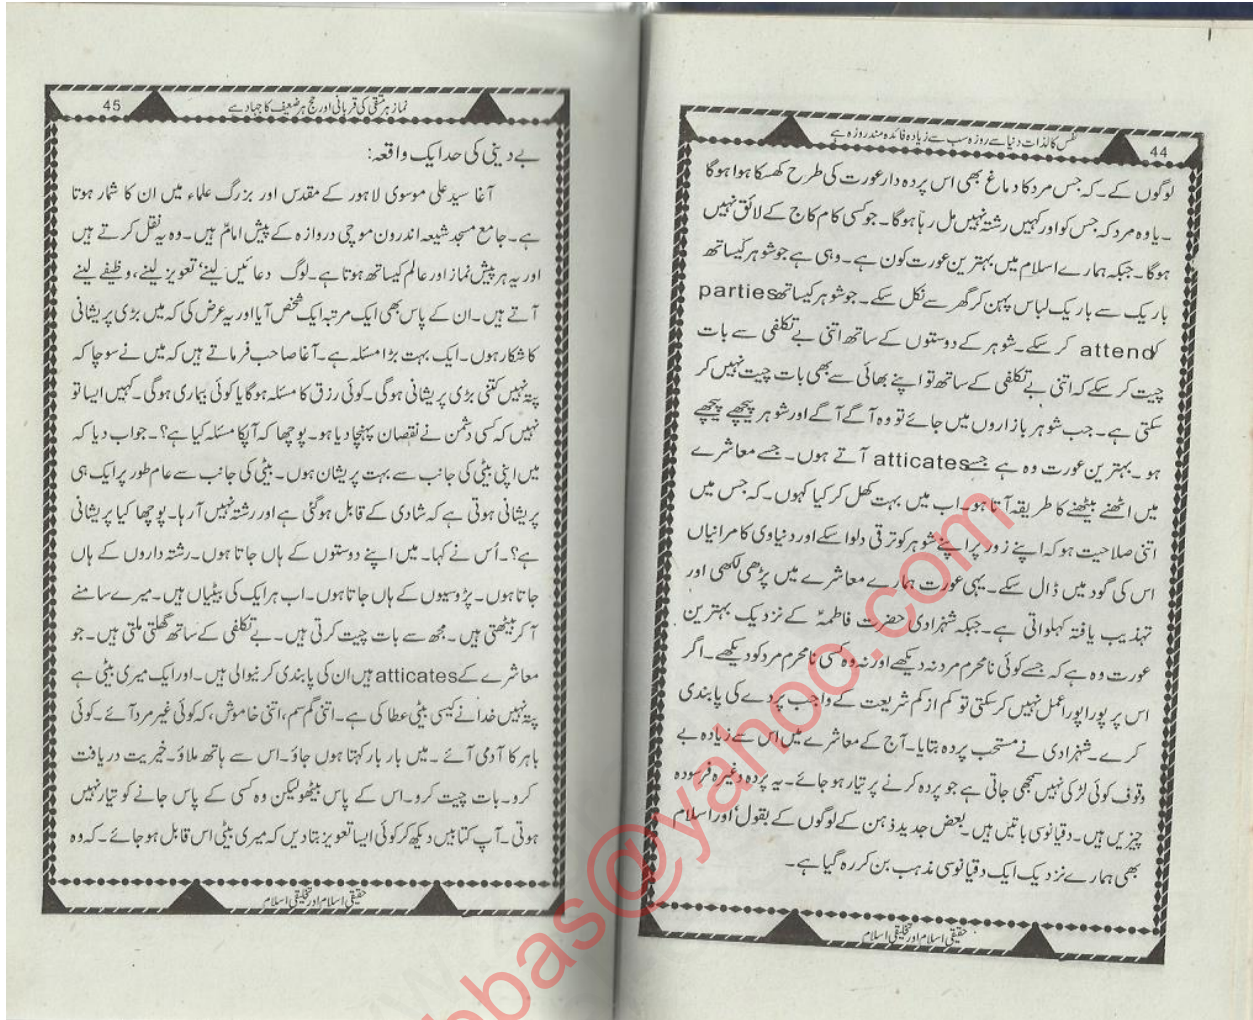 نفس کا لذات دنیا سے روزہ سب سے زیادہ فائدہ مند روزہ ہے
44
لوگوں کے۔ کہ جس مرد کا دماغ بھی اس پردہ دار عورت کی طرح کھسکا ہوا ہوگا
۔ یا وہ مرد کہ جس کو اور کہیں رشتہ نہیں مل رہا ہوگا۔ جو کسی کام کاج کے لائق نہیں
ہوگا۔ جبکہ ہمارے اسلام میں بہترین عورت کون ہے۔ وہی ہے جو شوہر کیساتھ
باریک سے باریک لباس پہن کر گھر سے نکل سکے۔ جو شوہر کیساتھ parties
کو attend کر سکے۔ شوہر کے دوستوں کے ساتھ اتنی بے تکلفی سے بات
چیت کر سکے کہ اتنی بے تکلفی کے ساتھ تو اپنے بھائی سے بھی بات چیت نہیں کر
سکتی ہے۔ جب شوہر بازاروں میں جائے تو وہ آگے آگے اور شوہر پیچھے پیچھے
ہو۔ بہترین عورت وہ ہے جسے atticates آتے ہوں۔ جسے معاشرے
میں اٹھنے بیٹھنے کا طریقہ آتا ہو۔ اب میں بہت کھل کر کیا کہوں۔ کہ جس میں
اتنی صلاحیت ہو کہ اپنے زور پر اپنے شوہر کو ترقی دلوا سکے اور دنیاوی کامرانیاں
اس کی گود میں ڈال سکے۔ یہی عورت ہمارے معاشرے میں پڑھی لکھی اور
تہذیب یافتہ کہلواتی ہے۔ جبکہ شہزادی حضرت فاطمہؑ کے نزدیک بہترین
عورت وہ ہے کہ جسے کوئی نامحرم مرد نہ دیکھے اور نہ وہ کسی نامحرم مرد کو دیکھے۔ اگر
اس پر پورا پورا عمل نہیں کر سکتی تو کم از کم شریعت کے واجب پردے کی پابندی
کرے۔ شہزادی نے مستحب پردہ بتایا۔ آج کے معاشرے میں اس سے زیادہ بے
وقوف کوئی لڑکی نہیں سمجھی جاتی ہے جو پردہ کرنے پر تیار ہو جائے۔ یہ پردہ وغیرہ فرسودہ
چیزیں ہیں۔ دقیانوسی باتیں ہیں۔ بعض جدید ذہن کے لوگوں کے بقول' اور اسلام
بھی ہمارے نزدیک ایک دقیانوسی مذہب بن کر رہ گیا ہے۔
حقیقی اسلام اور تخلیقی اسلام
نماز ہر متقی کی قربانی اور حج ہر ضعیف کا جہاد ہے
45
بے دینی کی حد ایک واقعہ:
آغا سید علی موسوی لاہور کے مقدس اور بزرگ علماء میں ان کا شمار ہوتا
ہے۔ جامع مسجد شیعہ اندرون موچی دروازہ کے پیش امام ہیں۔ وہ یہ نقل کرتے ہیں
اور یہ ہر پیش نماز اور عالم کیساتھ ہوتا ہے۔ لوگ دعائیں لینے' تعویز لینے، وظیفے لینے
آتے ہیں۔ ان کے پاس بھی ایک مرتبہ ایک شخص آیا اور یہ عرض کی کہ میں بڑی پریشانی
کا شکار ہوں۔ ایک بہت بڑا مسئلہ ہے۔ آغا صاحب فرماتے ہیں کہ میں نے سوچا کہ
پتہ نہیں کتنی بڑی پریشانی ہوگی۔ کوئی رزق کا مسئلہ ہوگا یا کوئی بیماری ہوگی۔ کہیں ایسا تو
نہیں کہ کسی دشمن نے نقصان پہنچا دیا ہو۔ پوچھا کہ آپکا مسئلہ کیا ہے؟۔ جواب دیا کہ
میں اپنی بیٹی کی جانب سے بہت پریشان ہوں۔ بیٹی کی جانب سے عام طور پر ایک ہی
پریشانی ہوتی ہے کہ شادی کے قابل ہوگئی ہے اور رشتہ نہیں آ رہا۔ پوچھا کیا پریشانی
ہے؟۔ اُس نے کہا۔ میں اپنے دوستوں کے ہاں جاتا ہوں۔ رشتہ داروں کے ہاں
جاتا ہوں۔ پڑوسیوں کے ہاں جاتا ہوں۔ اب ہر ایک کی بیٹیاں ہیں۔ میرے سامنے
آ کر بیٹھتی ہیں۔ مجھ سے بات چیت کرتی ہیں۔ بے تکلفی کے ساتھ گھلتی ملتی ہیں۔ جو
معاشرے کے atticates ہیں ان کی پابندی کرنیوالی ہیں۔ اور ایک میری بیٹی ہے
پتہ نہیں خدا نے کیسی بیٹی عطا کی ہے۔ اتنی گم سم، اتنی خاموش، کہ کوئی غیر مرد آئے۔ کوئی
باہر کا آدمی آئے۔ میں بار بار کہتا ہوں جاؤ۔ اس سے ہاتھ ملاؤ۔ خیریت دریافت
کرو۔ بات چیت کرو۔ اس کے پاس بیٹھو لیکن وہ کسی کے پاس جانے کو تیار نہیں
ہوتی۔ آپ کتابیں دیکھ کر کوئی ایسا تعویز بتا دیں کہ میری بیٹی اس قابل ہو جائے۔ کہ وہ
حقیقی اسلام اور تخلیقی اسلام
bas@yahoo.com